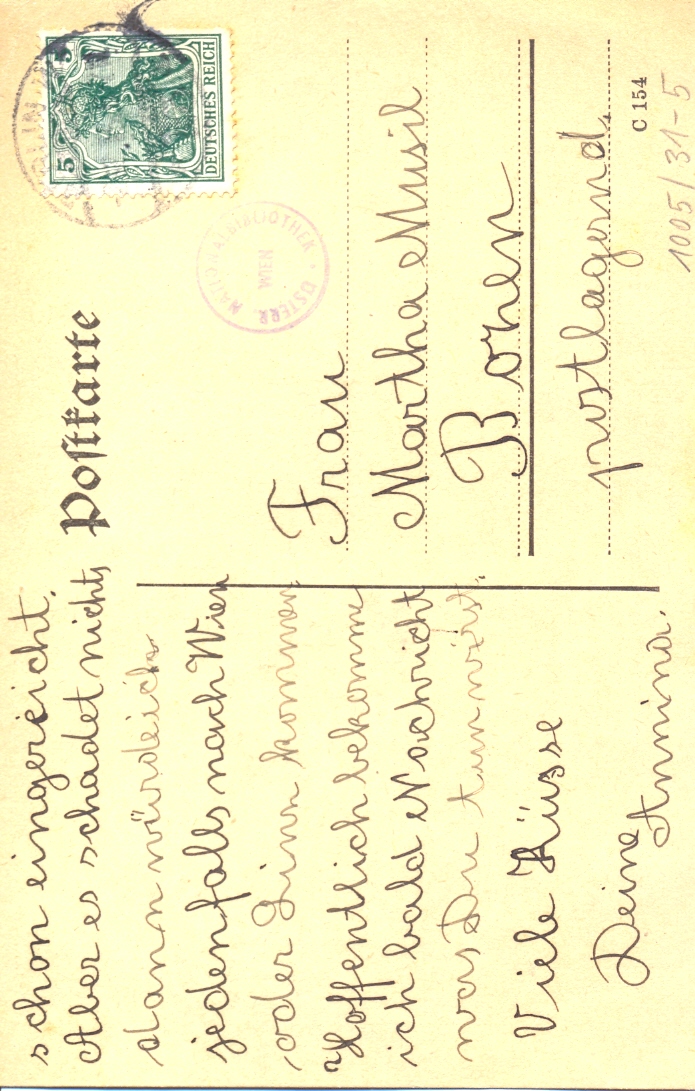 schon eingereicht.
Aber es schadet nichts,
dann würde ich
jedenfalls nach Wien
oder Linn kommen
Hoffentlich bekomme
ich bald Nachricht
was Du tun wirst.
Viele Küsse
Deine
Annina.
Postkarte
5 5
DEUTSCHES REICH
NATIONALBIBLIOTHEK
WIEN
ÖSTERR.
Frau
Martha Musil
Bozen
postlagernd.
C 154
1005/31-5